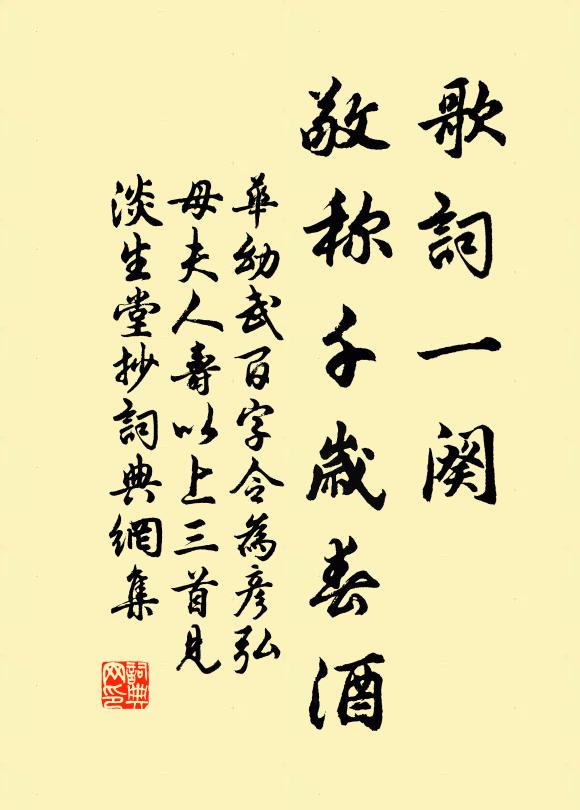 歌詞一闋
敬称千歲春酒
華幼武百字令為彥弘
母夫人壽以上三首見
淡生堂抄詞典網集
詞典
网印